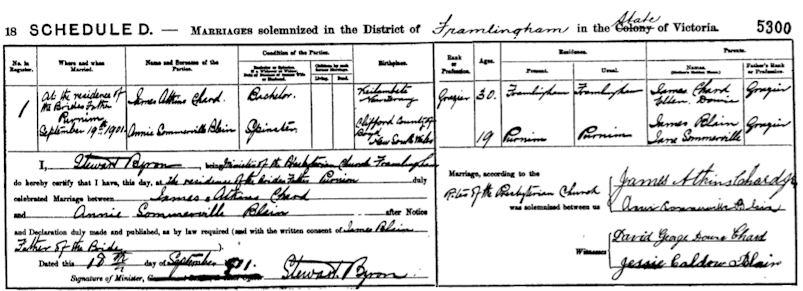 18 SCHEDULE D. — MARRIAGES solemnized in the District of Framlingham in the State Colony of Victoria. 5300
No. in Register.
Where and when Married.
Name and Surname of the Parties.
Condition of the Parties.
Bachelor or Spinster.
Children by each former Marriage.
Living. Dead.
Birthplaces.
Rank or Profession.
Ages.
Residence.
Present. Usual.
Parents.
Names.
Father's Rank or Profession.
1
At the residence of the Brides Father Purnim September 19th 1901.
James Atkins Chard. Bachelor Keilambete Grazier 30. Framlingham Framlingham James Chard Ellen Grazier
Annie Sommerville Blain Spinster Clifford County of Boyd New South Wales 19 Purnim Purnim James Blain Jane Sommerville Grazier
I, Stewart Byron, being Minister of the Presbyterian Church Framlingham
do hereby certify that I have, this day, at the residence of the Brides Father Purnim duly
celebrated Marriage between James Atkins Chard
and Annie Sommerville Blain after Notice
and Declaration duly made and published, as by law required (and with the written consent of James Blain
Father of the Bride).
Dated this day of September 1901.
Signature of Minister, Stewart Byron
Marriage, according to the
Rites of the Presbyterian Church
was solemnized between us
James Atkins Chard Jr
Annie Sommerville Blain
Witnesses
David George Downe Chard
Jessie Caldow Blain